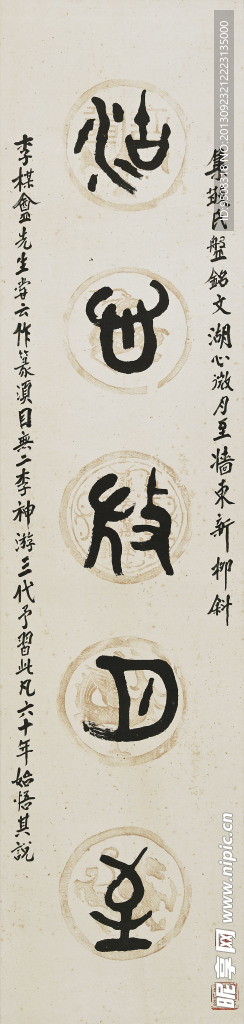 集散氏盤銘文湖心微月至牆東新柳斜
湖心微月至
李楳盦先生嘗云作篆須目無二李神游三代予習此凡六十年始悟其說
昵享网 www.nipic.cn
NO:20130923212223135000